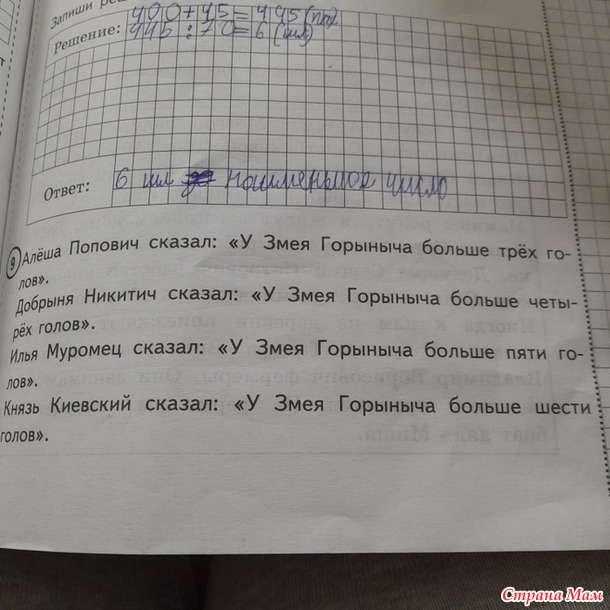 Запиши
400+45=445(пас)
Решение: 445:70=6(шл)
Ответ: 6 шл наименьшое число
9 Алёша Попович сказал: «У Змея Горыныча больше трёх го-
лов».
Добрыня Никитич сказал: «У Змея Горыныча больше четы-
рёх голов».
Илья Муромец сказал: «У Змея Горыныча больше пяти го-
лов».
Князь Киевский сказал: «У Змея Горыныча больше шести
голов».
Страна Мам